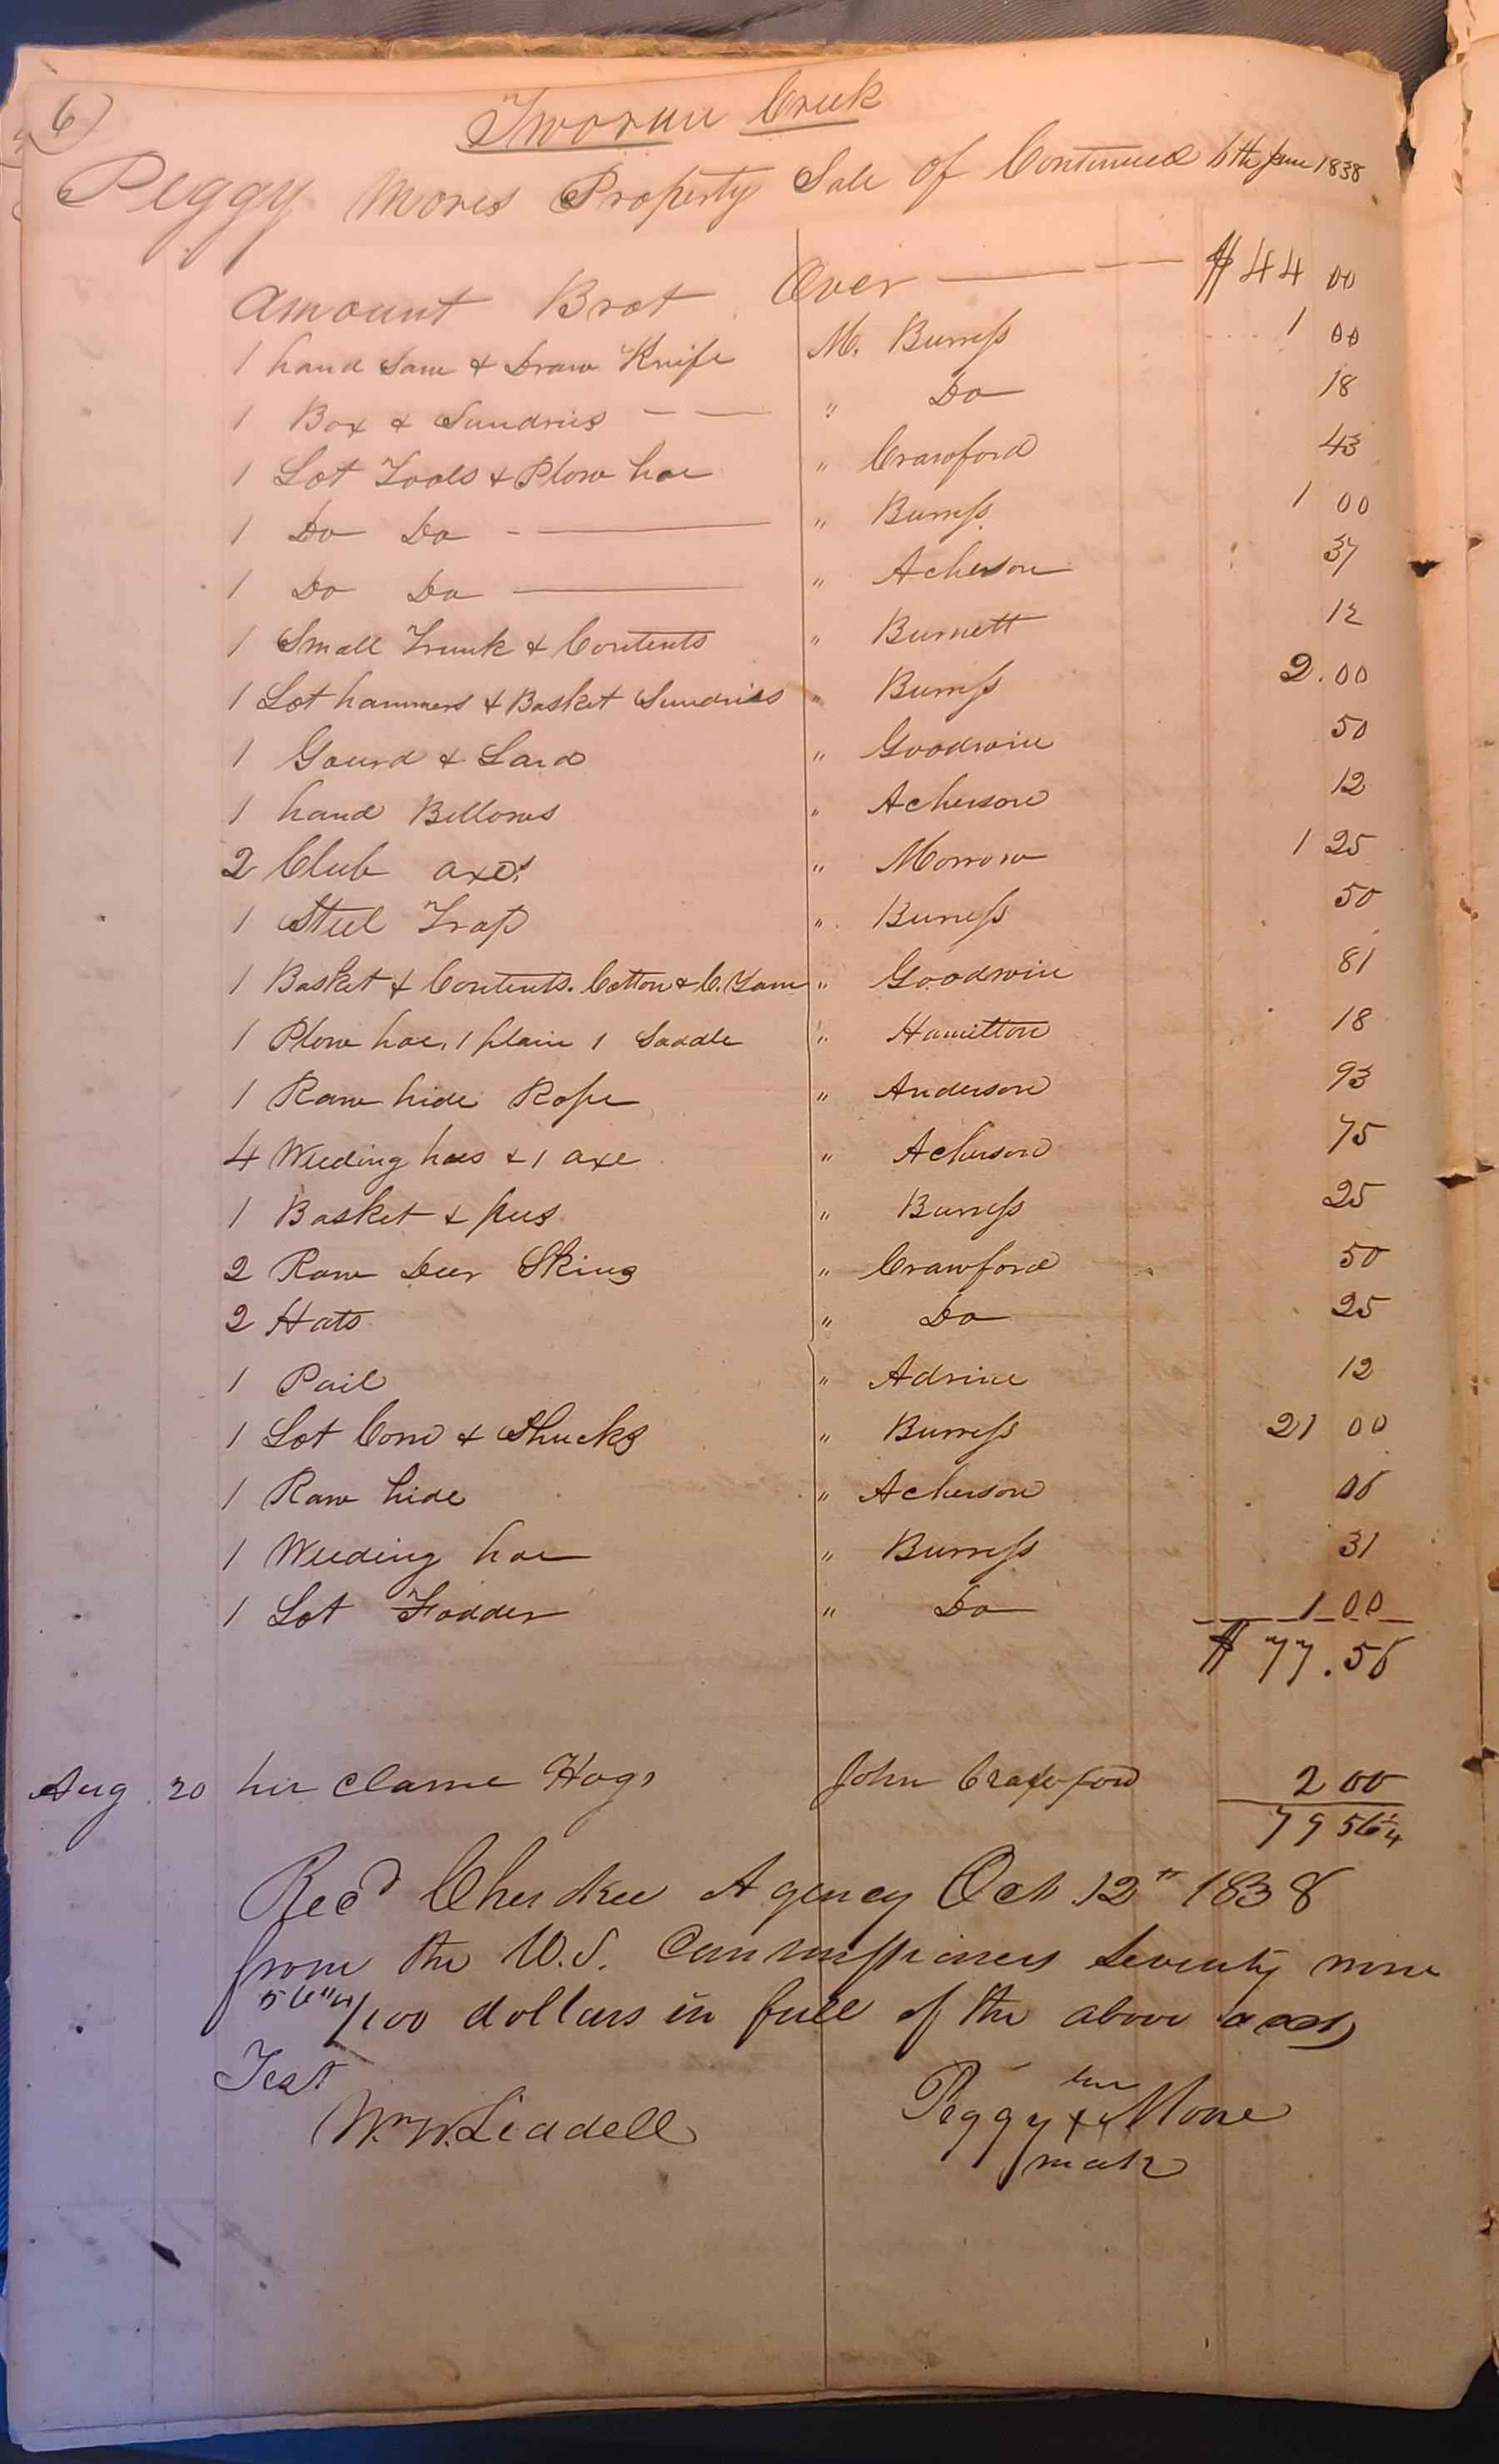 6)
Tworun Creek
Peggy Mores Property Sale of Continued 6th June 1838
Amount Brot Over — — — $44 00
1 hand Saw & Draw Knife M. Burress 1 00
1 Box & Sundries — — " Do 18
1 Lot Tools & Plow hoe " Crawford 43
1 Do Do - — " Burress 1 00
1 Do Do — " Acherson 37
1 Small Trunk & Contents " Burnett 12
1 Lot hammers & Basket Sundries " Burress 2.00
1 Gourd & Lard " Goodwin 50
1 hand Bellows " Acherson 12
2 Club axes " Morrow 1 25
1 Steel Trap " Burress 50
1 Basket & Contents. Cotton & C. Yarn " Goodwin 81
1 Plow hoe, 1 plain 1 Saddle " Hamilton 18
1 Raw hide Rope " Anderson 93
4 Weeding hoes & 1 axe " Acherson 75
1 Basket & peas " Burress 25
2 Raw Deer Skins " Crawford 50
2 Hats " Do 25
1 Pail " Adrine 12
1 Lot Corn & Shucks " Burress 21 00
1 Raw hide " Acherson 06
1 Weeding hoe " Burress 31
1 Lot Fodder " Do 1 00
$ 77.56
Aug 20 her Clame Hogs John Crawford 2 00
79 56 1/4
Recd Cherokee Agency Oct. 12th 1838
from the U.S. Commissioners Seventy nine
56 1/4/100 dollars in full of the above acct,
Test
her
Wm W. Liddell Peggy x More
mark